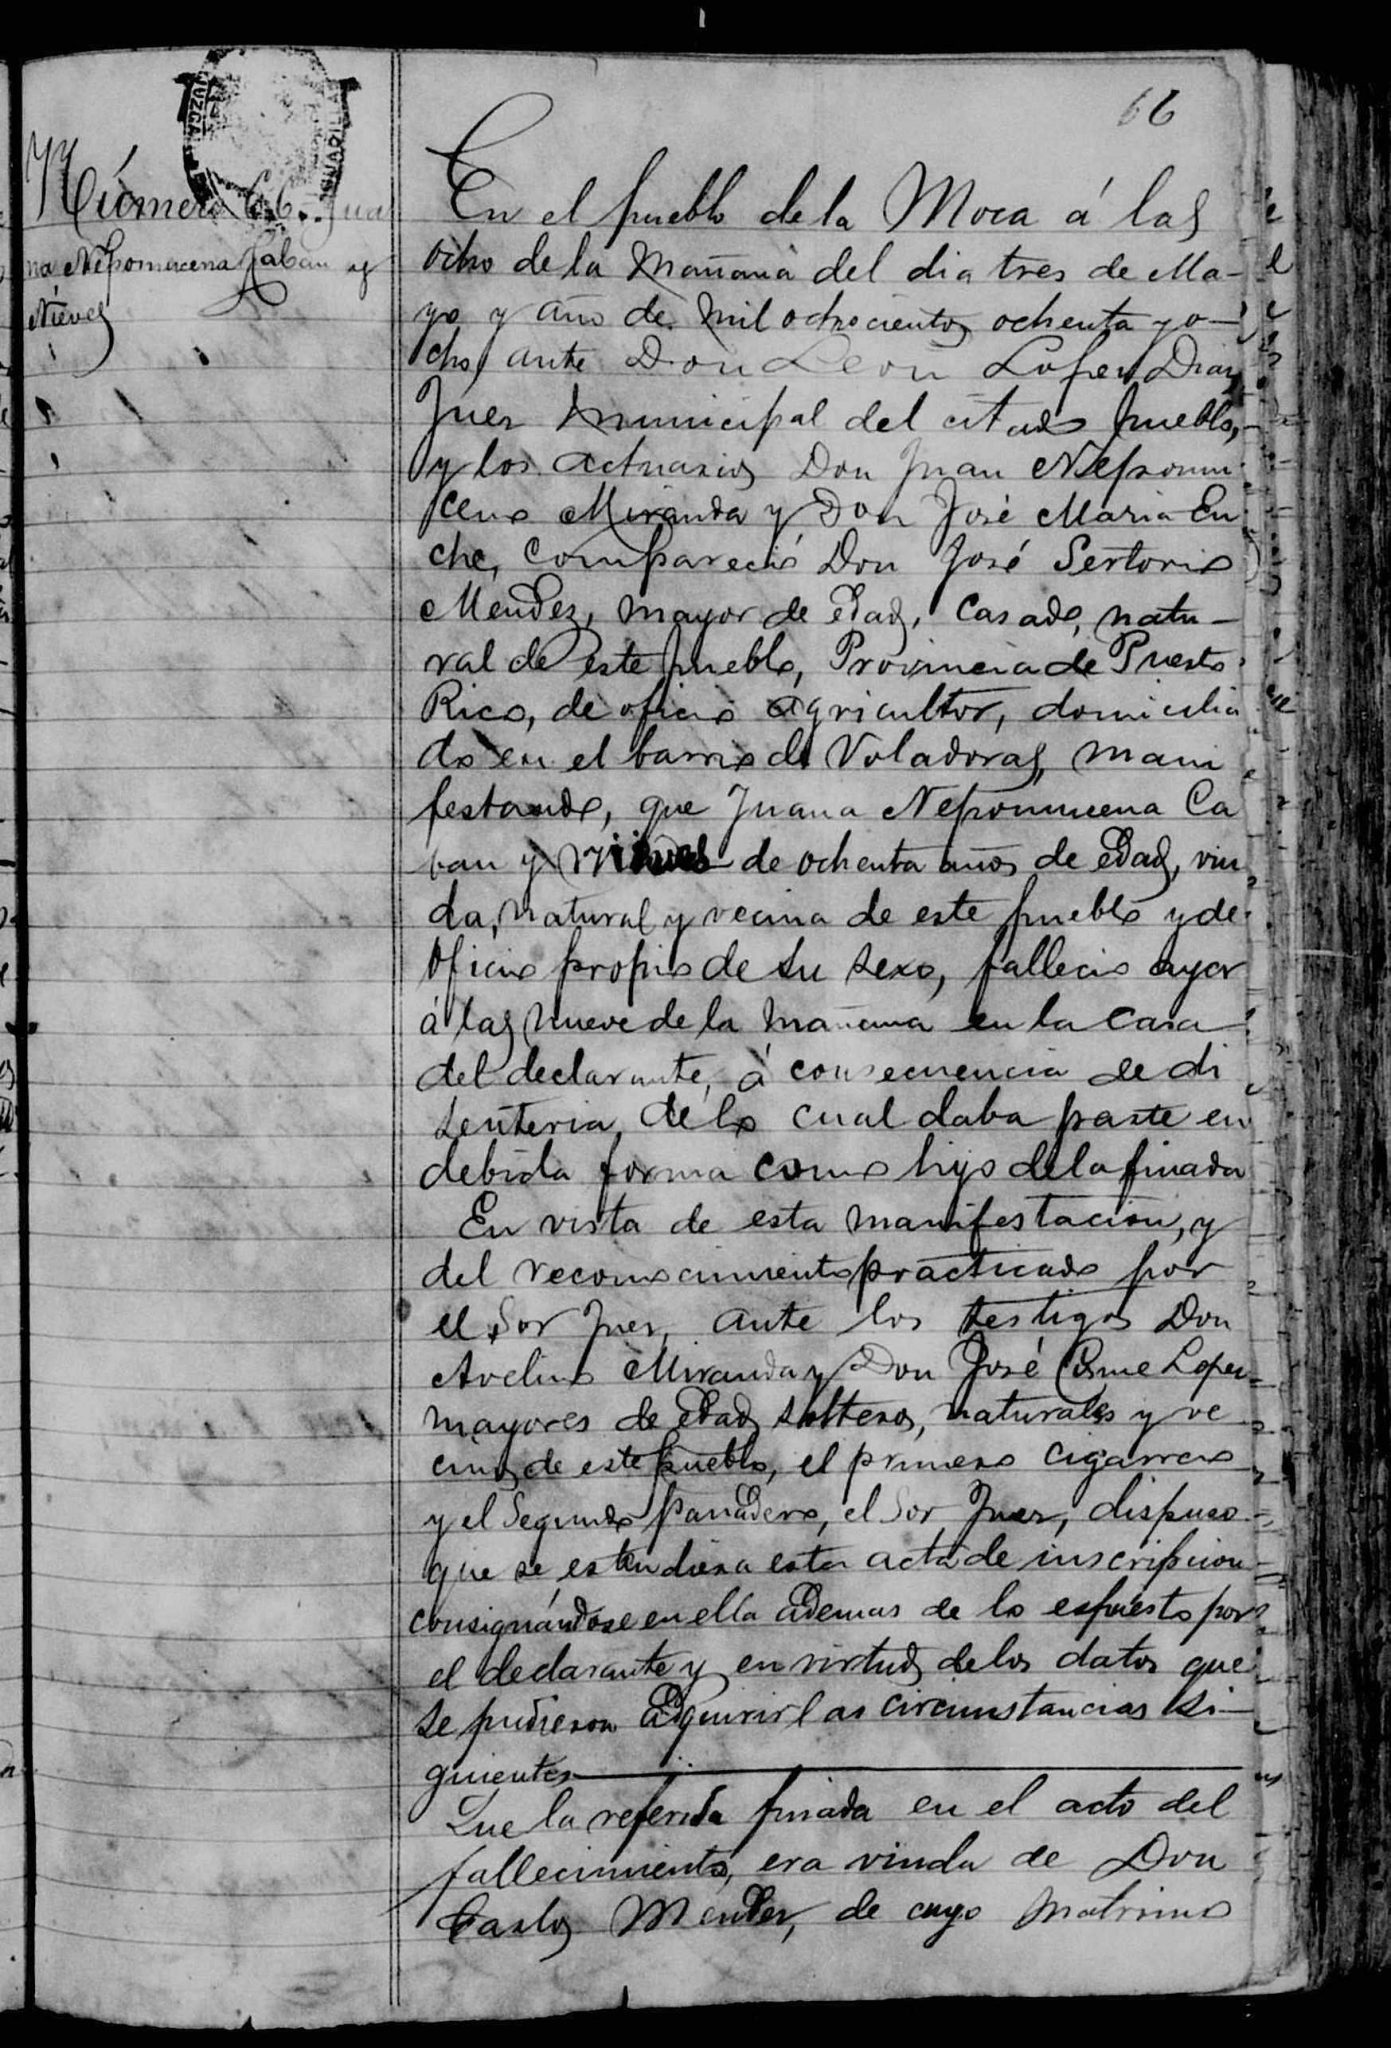 66
JUZGA
GUADILLA
Número 66. Jua
na Nepomucena Caban y
Nieves
En el pueblo de la Moca á las
ocho de la mañana del dia tres de Ma-
yo y año de mil ochocientos ochenta y o-
cho, ante Don Leon Lopez Diaz,
Juez Municipal del citado pueblo,
y los actuarios Don Juan Nepomu
ceno Miranda y Don José Maria En
che, compareció Don José Sertorio
Mendez, mayor de edad, casado, natu-
ral de este pueblo, Provincia de Puerto
Rico, de oficio agricultor, domicilia
do en el barrio de Voladoras, mani
festando, que Juana Nepomucena Ca
ban y Nieves de ochenta años de edad, viu
da, natural y vecina de este pueblo y de
oficio propio de su sexo, fallecio ayer
á las nueve de la mañana en la casa
del declarante, á consecuencia de di
senteria, de lo cual daba parte en
debida forma como hijo de la finada
En vista de esta manifestacion, y
del reconocimiento practicado por
el Sor Juez, ante los testigos Don
Avelino Miranda y Don José Cosme Lopez
mayores de edad, solteros, naturales y ve
cinos de este pueblo, el primero cigarrero
y el segundo panadero, el Sor Juez, dispuso
que se estendiera esta acta de inscripcion
consignándose en ella ademas de lo espuesto por
el declarante y en virtud de los datos que
se pudieron adquirir las circunstancias si-
guientes
Que la referida finada en el acto del
fallecimiento, era viuda de Don
Carlos Mendez, de cuyo matrimo